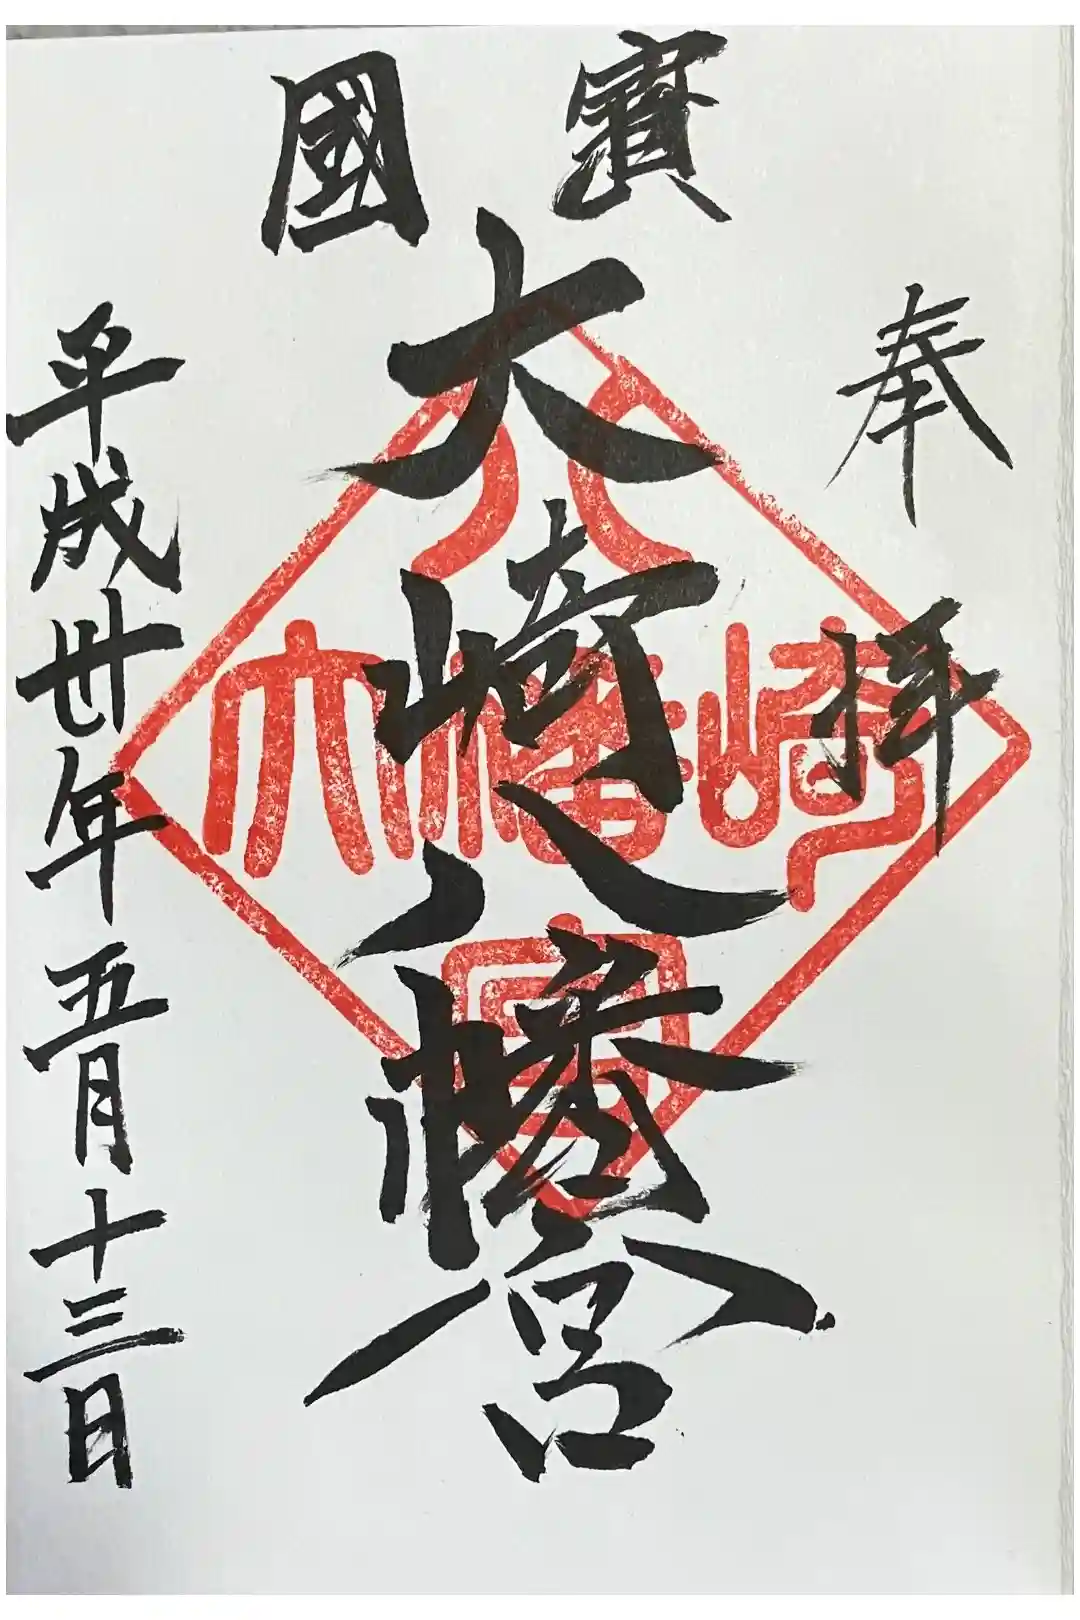 奉拝
國寳
大崎八幡宮
平成卅年五月十三日
大崎八幡宮